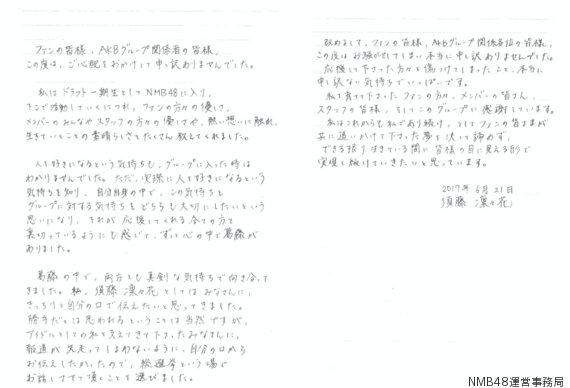 ファンの皆様、AKBグループ関係者の皆様、
この度は、ご心配をおかけして申し訳ありませんでした。
私はドラフト一期生としてNMB48に入り、
そこで活動していくにつれ、ファンの方々の優しさ、
メンバーのみんなやスタッフの方々の優しさや、熱い想いに触れ、
生きていくことの素晴らしさをたくさん教えてくれました。
人を好きになるという気持ちも、グループに入った時は
わかりませんでした。ただ、実際に人を好きになるという
気持ちを知り、自分自身の中で、この気持ちと
グループに対する気持ちをどちらも大切にしたいという
思いになり、それが応援してくれる全ての方を
裏切っているようにも感じて、ずっと心の中で葛藤が
ありました。
葛藤の中で、両方とも真剣な気持ちで向き合って
きました。私、須藤凜々花としてはみなさんに、
きっちりと自分の口で伝えたいと思ってきました。
勝手だとは思われるということは当然ですが、
アイドルとしての私を支えてきて下さったみなさんに、
報道が先走ってしまわないように、自分の口から
お伝えしたかったので、総選挙という場で
お話しさせて頂くことを選びました。
改めまして、ファンの皆様、AKBグループ関係各位の皆様、
この度はお騒がせしてしまい本当に申し訳ありませんでした。
応援して下さった方々を傷つけてしまったこと、本当に
申し訳ない気持ちでいっぱいです。
私を育てて下さったファンの方々、メンバーの皆さん、
スタッフの皆様、そしてこのグループに感謝しています。
私はこれからも私であり続け、そしてファンの皆さまが
共に追いかけて下さった夢を決して諦めず、
できる限り生きている間に皆様の目に見える形で
実現し続けていきたいと思っています。
2017年6月21日
須藤 凜々花
NMB48運営事務局